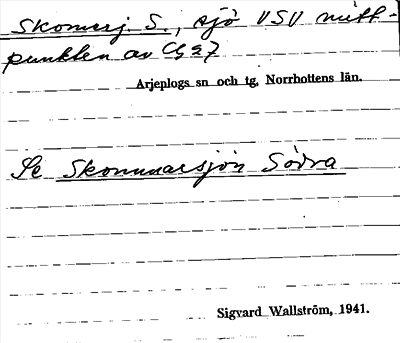 Skomerj. S., sjö VSV mitt-
punkten av
Arjeplogs sn och tg, Norrbottens län.
Se Skommarsjön Södra
Sigvard Wallström, 1941.